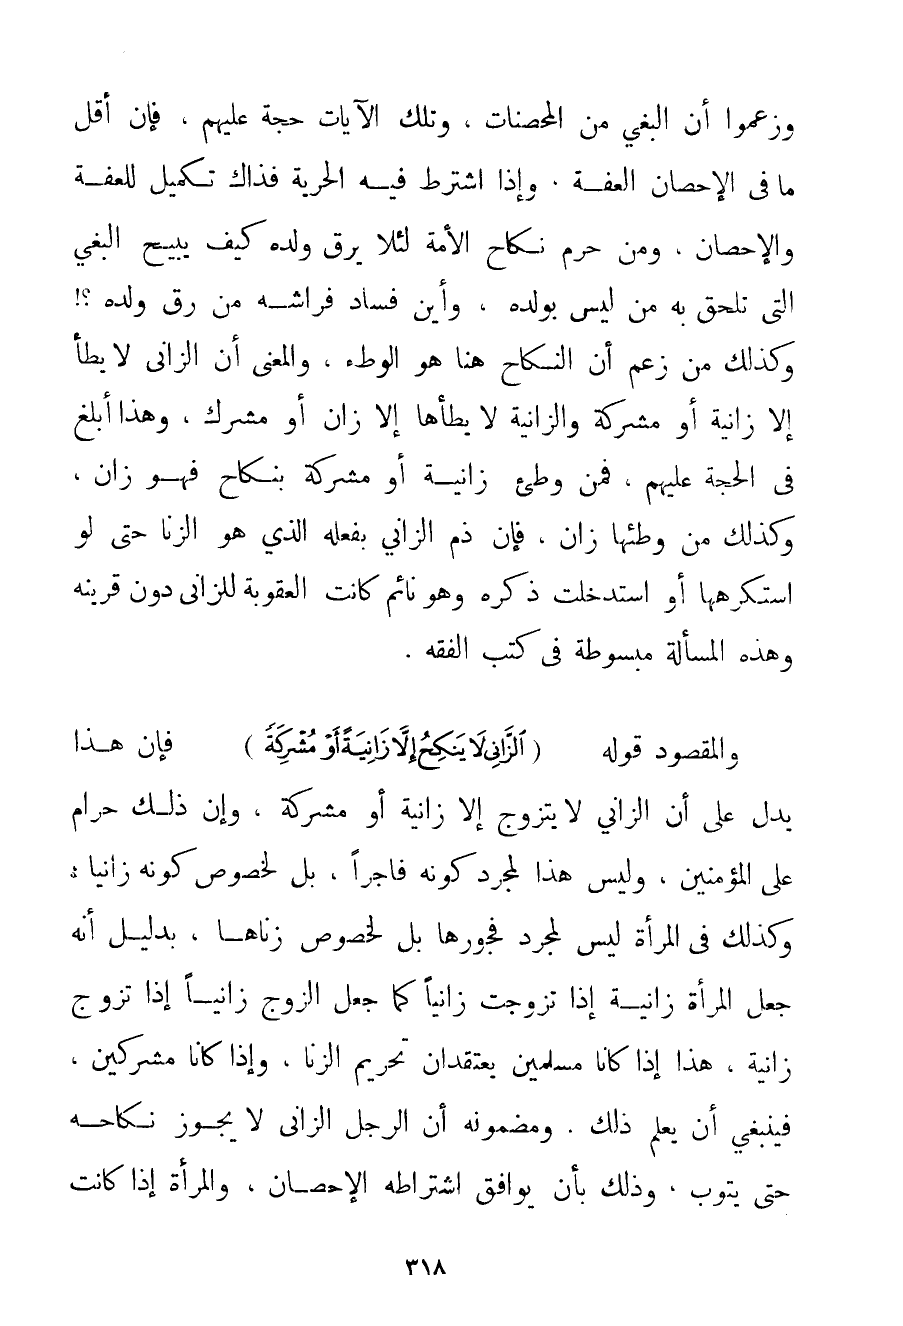 وزعموا أن البغي من المحصنات ، وتلك الآيات حجة عليهم ، فإن أقل
ما فى الإحصان العفــة . وإذا اشترط فيــه الحرية فذاك تـكميل للعفــة
والإحصان ، ومن حرم نـكاح الأمة لئلا يرق ولده كيف يبيــح البغي
التى تلحق به من ليس بولده ، وأين فساد فراشــه من رق ولده ؟!
وكذلك من زعم أن النـكاح هنا هو الوطء ، والمعنى أن الزانى لا يطأ
إلا زانية أو مشركة والزانية لا يطأها إلا زان أو مشرك ، وهذا أبلغ
فى الحجة عليهم ، فمن وطئ زانيــة أو مشركة بنـكاح فهــو زان ،
وكذلك من وطئها زان ، فإن ذم الزاني بفعله الذي هو الزنا حتى لو
استكرهها أو استدخلت ذكره وهو نائم كانت العقوبة للزانى دون قرينه
وهذه المسألة مبسوطة فى كتب الفقه .
والمقصود قوله ( ٱلزَّانِى لَا يَنكِحُ إِلَّا زَانِيَةً أَوْ مُشْرِكَةً ) فإن هــذا
يدل على أن الزاني لا يتزوج إلا زانية أو مشركة ، وإن ذلــك حرام
على المؤمنين ، وليس هذا لمجرد كونه فاجراً ، بل لخصوص كونه زانيا ؛
وكذلك فى المرأة ليس لمجرد فجورها بل لخصوص زناهــا ، بدليــل أنه
جعل المرأة زانيــة إذا تزوجت زانياً كما جعل الزوج زانيــاً إذا تزوج
زانية ، هذا إذا كانا مسلمين يعتقدان تحريم الزنا ، وإذا كانا مشركين ،
فينبغي أن يعلم ذلك . ومضمونه أن الرجل الزانى لا يجــوز نـكاحــه
حتى يتوب ، وذلك بأن يوافق اشتراطه الإحصــان ، والمرأة إذا كانت
٣١٨